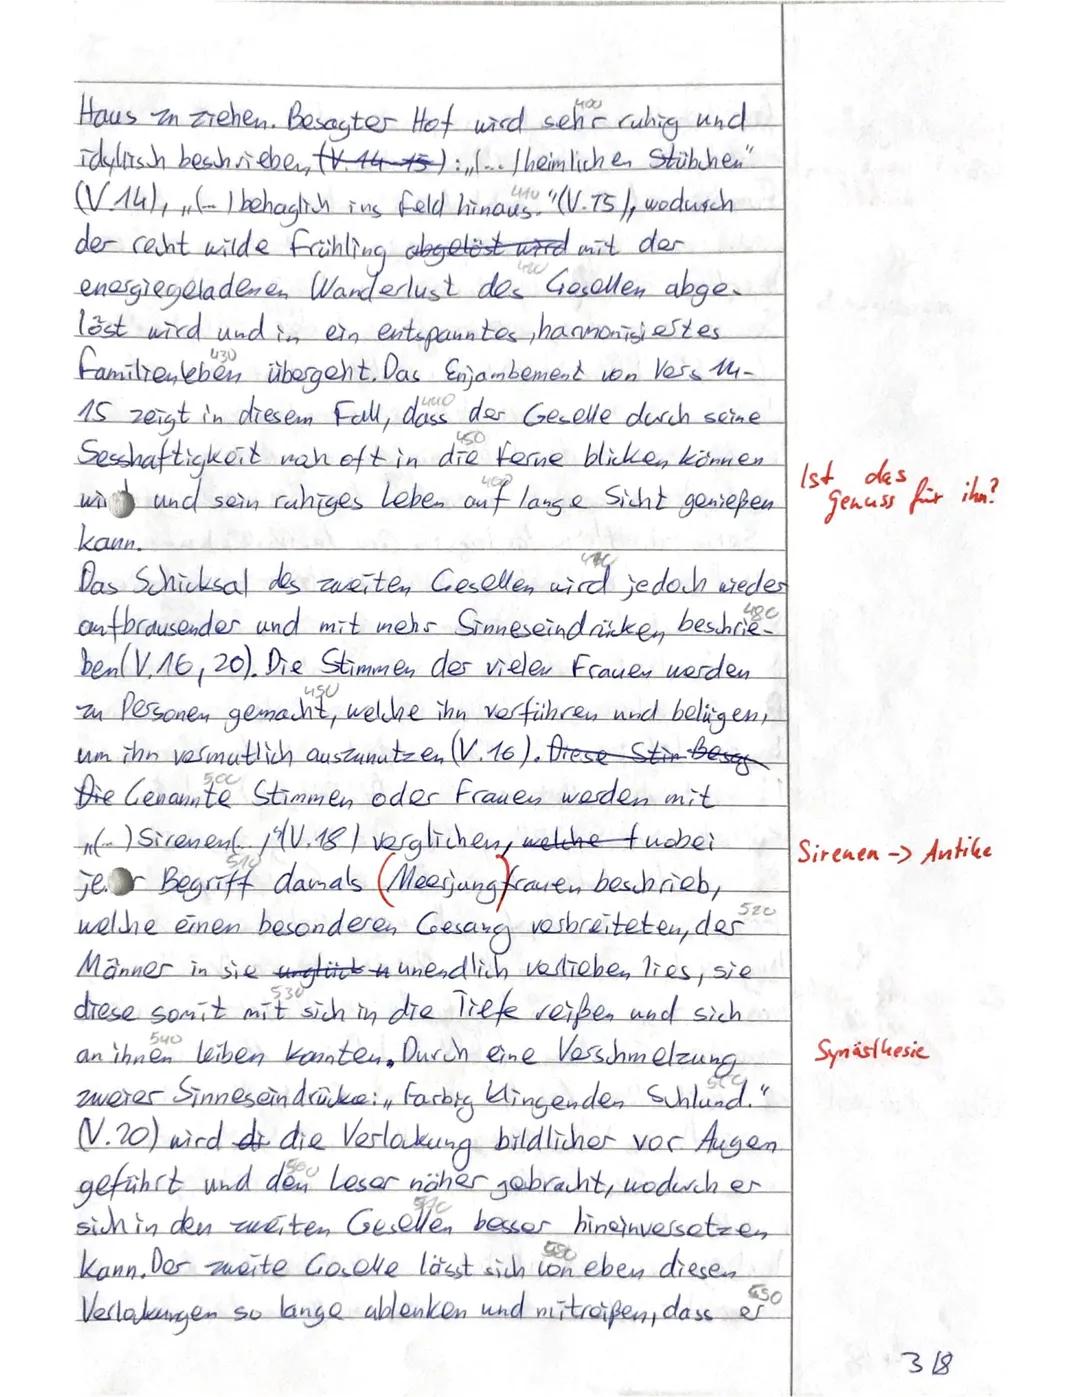 Haus zu ziehen. Besagter Hof wird sehr ruhig und
400
idyllisch beschrieben, (V. 14-15): „(... ) heimlichen Stübchen"
(V.14), „(... ) behaglich ins Feld hinaus." (V.15), wodurch
410
der recht wilde Frühling abgelöst wird mit der
420
energiegeladenen Wanderlust des Gesellen abge-
löst wird und in ein entspanntes, harmonisiertes
430
Familienleben übergeht. Das Enjambement von Vers 14-
15 zeigt in diesem Fall, dass der Geselle durch seine
440
Sesshaftigkeit noch oft in die Ferne blicken können
450
und sein ruhiges Leben auf lange Sicht genießen
460
Ist das
Genuss für ihn?
kann.
Das Schicksal des zweiten Gesellen wird jedoch wieder
470
aufbrausender und mit mehr Sinneseindrücken beschrie-
480
ben (V. 16, 20). Die Stimmen der vielen Frauen werden
zu Personen gemacht, welche ihn verführen und belügen,
490
um ihn vermutlich auszunutzen (V. 16). Diese Stim Besag
Die Genannte Stimmen oder Frauen werden mit
500
„(... ) Sirenen(... )" (V. 18) verglichen, welche f wobei
Sirenen -> Antike
Begriff damals (Meerjung)frauen beschrieb,
510
welche einen besonderen Gesang verbreiteten, der
520
Männer in sie unglück n unendlich verlieben lies, sie
diese somit mit sich in die Tiefe reißen und sich
530
an ihnen leiben konnten. Durch eine Verschmelzung
540
Synästhesie
zweier Sinneseindrücke: „Farbig klingenden Schlund."
550
(V. 20) wird di die Verlockung bildlicher vor Augen
geführt und den Leser näher gebracht, wodurch er
560
sich in den zweiten Gesellen besser hineinversetzen
570
kann. Der zweite Geselle lässt sich von eben diesen
580
Verlockungen so lange ablenken und mitreißen, dass er
590
3/8